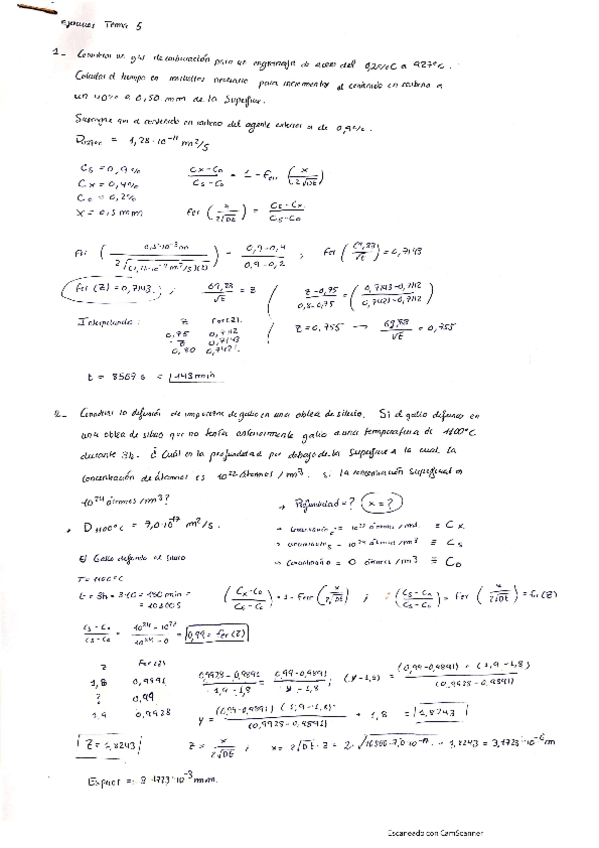 Ejercicios Tema 5
1- Considerar un gas de carburación para un engranaje de acero del 0,2% C a 927ºC.
Calcular el tiempo en minutos necesario para incrementar el contenido en carbono a
un 0,4% a 0,50 mm de la superficie.
Suponga que el contenido en carbono del agente exterior es de 0,9%.
= 1,28·10⁻¹¹ m²/s
Cs = 0,9% Cx-Co / Cs-Co = 1 - Ferr (x / 2√Dt)
Cx = 0,4%
Co = 0,2% Fer (x / 2√Dt) = Cs-Cx / Cs-Co
X = 0,5 mm
= 0,9-0,4 / 0,9-0,2 ; Fer (69,88 / √t) = 0,7143
Fer (Z) = 0,7143 ; 69,88 / √t = Z ( Z-0,75 / 0,8-0,75 = (0,7143-0,7112 / 0,7421-0,7112)
Interpolando: Z Fer(Z).
0,75 0,7112 ( Z = 0,755 → 69,88 / √t = 0,755
Z 0,7143
0,80 0,7421.
t = 8567 s = 143 min
2- Considerar la difusión de impurezas de galio en una oblea de silicio. Si el galio difunde en
una oblea de silicio que no tenía anteriormente galio a una temperatura de 1100ºC
durante 3h. ¿Cuál es la profundidad por debajo de la superficie a la cual la
concentración de átomos es 10²² átomos / m³. si la concentración superficial es
10²⁴ átomos / m³?
→ Profundidad = ? (x = ?)
· D1100ºC = 7,0·10⁻¹⁷ m²/s.
10²² átomos / m³. ≡ Cx
10²⁴ átomos / m³ ≡ Cs
0 átomos / m³ ≡ Co
El Galio difunde al silicio
T = 1100ºC
t = 3h = 3·60 = 180 min =
= 10800 s
(Cx-Co / Cs-Co) = 1 - Ferr (x / 2√Dt) ; (Cs-Cx / Cs-Co) = Fer (x / 2√Dt) = Fer (Z)
Cs-Cx / Cs-Co = 10²⁴ - 10²² / 10²⁴ - 0 = 0,99 = fer (Z)
Z Fer(Z)
1,8 0,9891
? 0,99
1,9 0,9928
0,9928-0,9891 / 1,9-1,8 = 0,99-0,9891 / y-1,8 ; (y-1,8) = (0,99-0,9891) · (1,9-1,8) / (0,9928-0,9891)
y = (0,99-0,9891) (1,9-1,8) / (0,9928-0,9891) + 1,8 = 1,8243
Z = 1,8243 Z = x / 2√Dt ; x = 2√Dt · Z = 2·√10800·7,0·10⁻¹⁷ · 1,8243 = 3,1723·10⁻⁶ m
Espesor = 3,1723·10⁻³ mm.
Escaneado con CamScanner